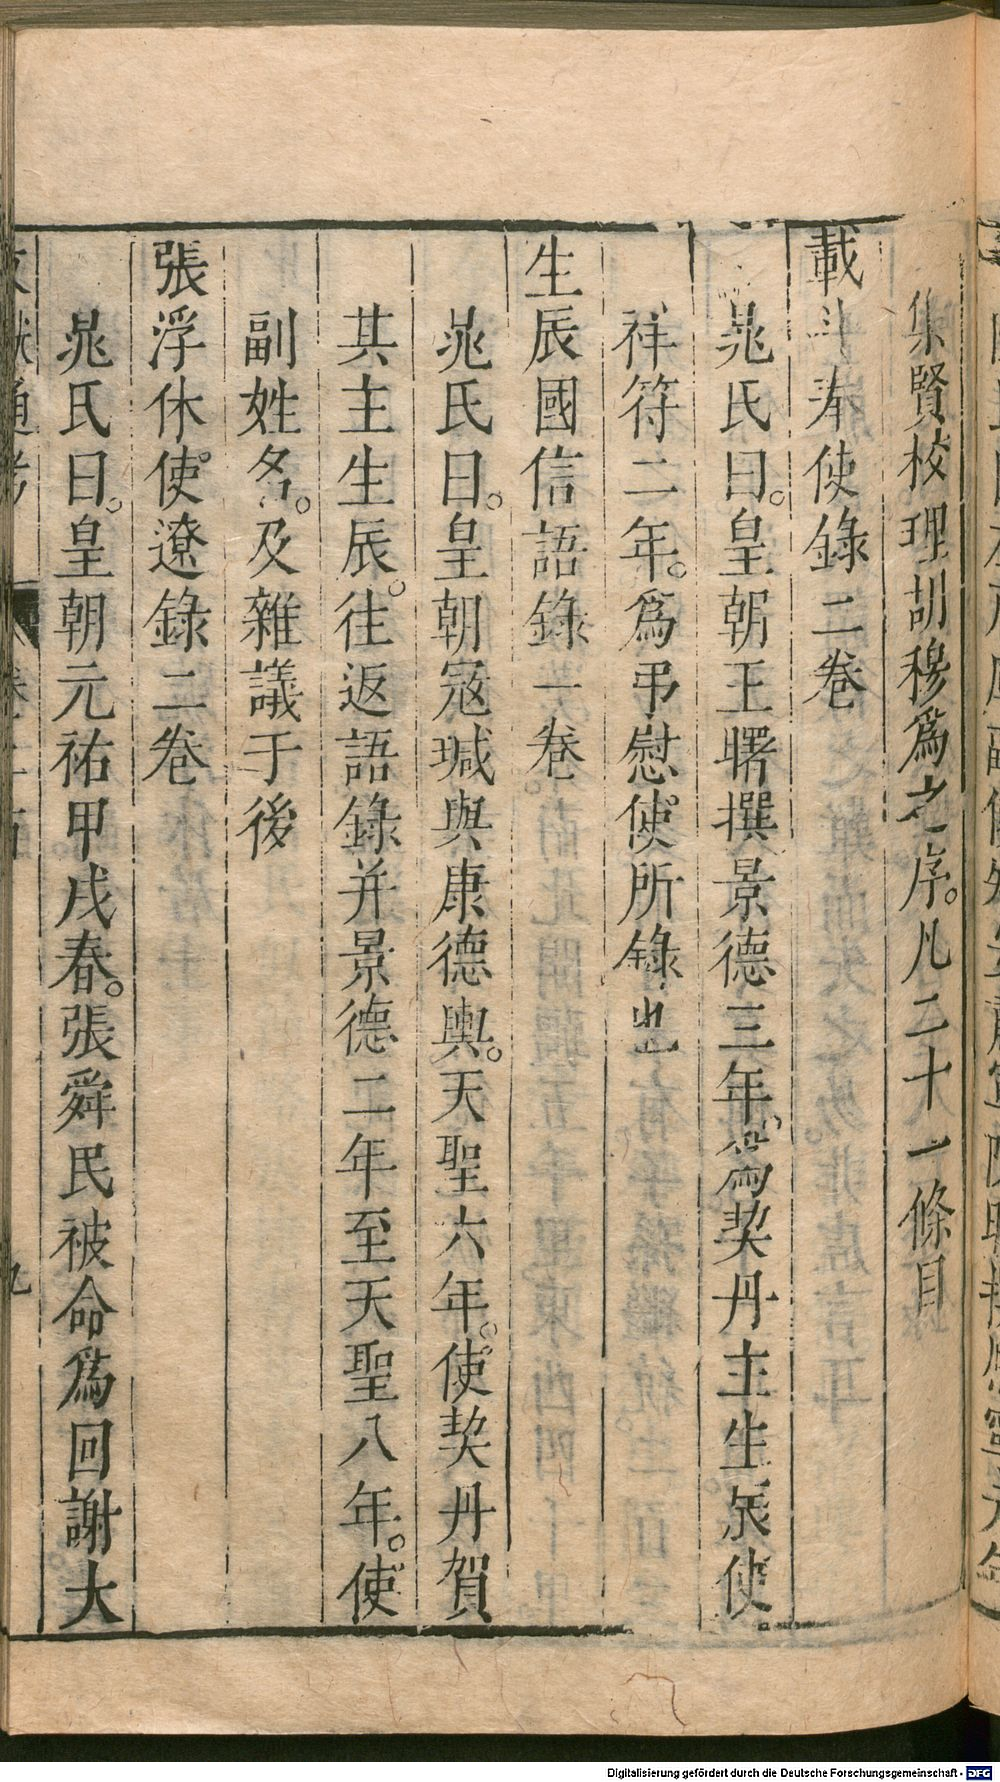 集賢校理胡穆爲之序。凡二十一條目
載斗奉使錄二卷
晁氏曰。皇朝王曙撰景德三年。爲契丹主生辰使
祥符二年。爲弔慰使所錄也
生辰國信語錄一卷
晁氏曰。皇朝寇瑊與康德輿。天聖六年。使契丹賀
其主生辰。往返語錄并景德二年至天聖八年。使
副姓名。及雜議于後
張浮休使遼錄二卷
晁氏曰。皇朝元祐甲戌春。張舜民被命爲回謝大
文獻通考 九
Digitalisierung gefördert durch die Deutsche Forschungsgemeinschaft - DFG